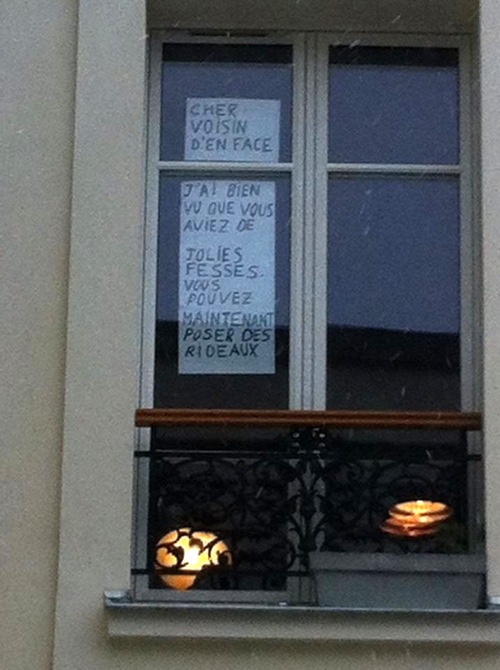 CHER
VOISIN
D'EN FACE
J'AI BIEN
VU QUE VOUS
AVIEZ DE
JOLIES
FESSES.
VOUS
POUVEZ
MAINTENANT
POSER DES
RIDEAUX